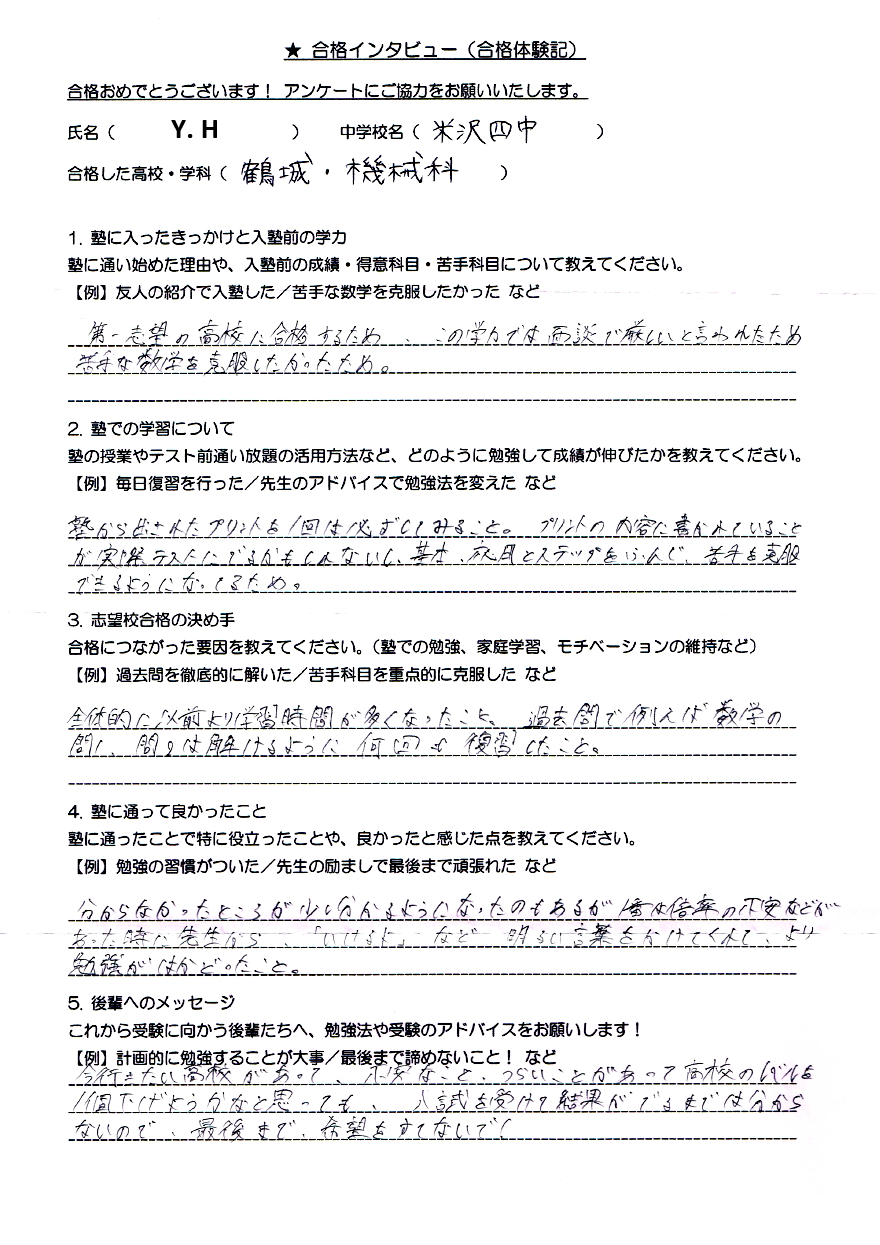 ★ 合格インタビュー（合格体験記）
合格おめでとうございます！ アンケートにご協力をお願いいたします。
氏名（ Y. H ） 中学校名（ 米沢四中 ）
合格した高校・学科（ 鶴城・機械科 ）
1. 塾に入ったきっかけと入塾前の学力
塾に通い始めた理由や、入塾前の成績・得意科目・苦手科目について教えてください。
【例】友人の紹介で入塾した／苦手な数学を克服したかった など
第一志望の高校に合格するため、この学力では面談で厳しいと言われたため
苦手な数学を克服したかったため。
2. 塾での学習について
塾の授業やテスト前通い放題の活用方法など、どのように勉強して成績が伸びたかを教えてください。
【例】毎日復習を行った／先生のアドバイスで勉強法を変えた など
塾から出されたプリントを1回は必ずしてみること。プリントの内容に書かれていること
が実際テストにでるかもしれないし、基本、応用とステップをふんで、苦手を克服
できるようになってるため。
3. 志望校合格の決め手
合格につながった要因を教えてください。（塾での勉強、家庭学習、モチベーションの維持など）
【例】過去問を徹底的に解いた／苦手科目を重点的に克服した など
全体的に以前より学習時間が多くなったこと、過去問で例えば数学の
問1、問2は解けるように何回も復習したこと。
4. 塾に通って良かったこと
塾に通ったことで特に役立ったことや、良かったと感じた点を教えてください。
【例】勉強の習慣がついた／先生の励ましで最後まで頑張れた など
分からなかったところが少し分かるようになったのもあるが1番は倍率の不安などが
あった時に先生から、「いけるよ」など明るい言葉をかけてくれて、より
勉強がはかどったこと。
5. 後輩へのメッセージ
これから受験に向かう後輩たちへ、勉強法や受験のアドバイスをお願いします！
【例】計画的に勉強することが大事／最後まで諦めないこと！ など
今行きたい高校があって、不安なこと、つらいことがあって高校のレベルを
1個下げようかなと思っても、入試を受けて結果がでるまでは分から
ないので、最後まで、希望をすてないで！